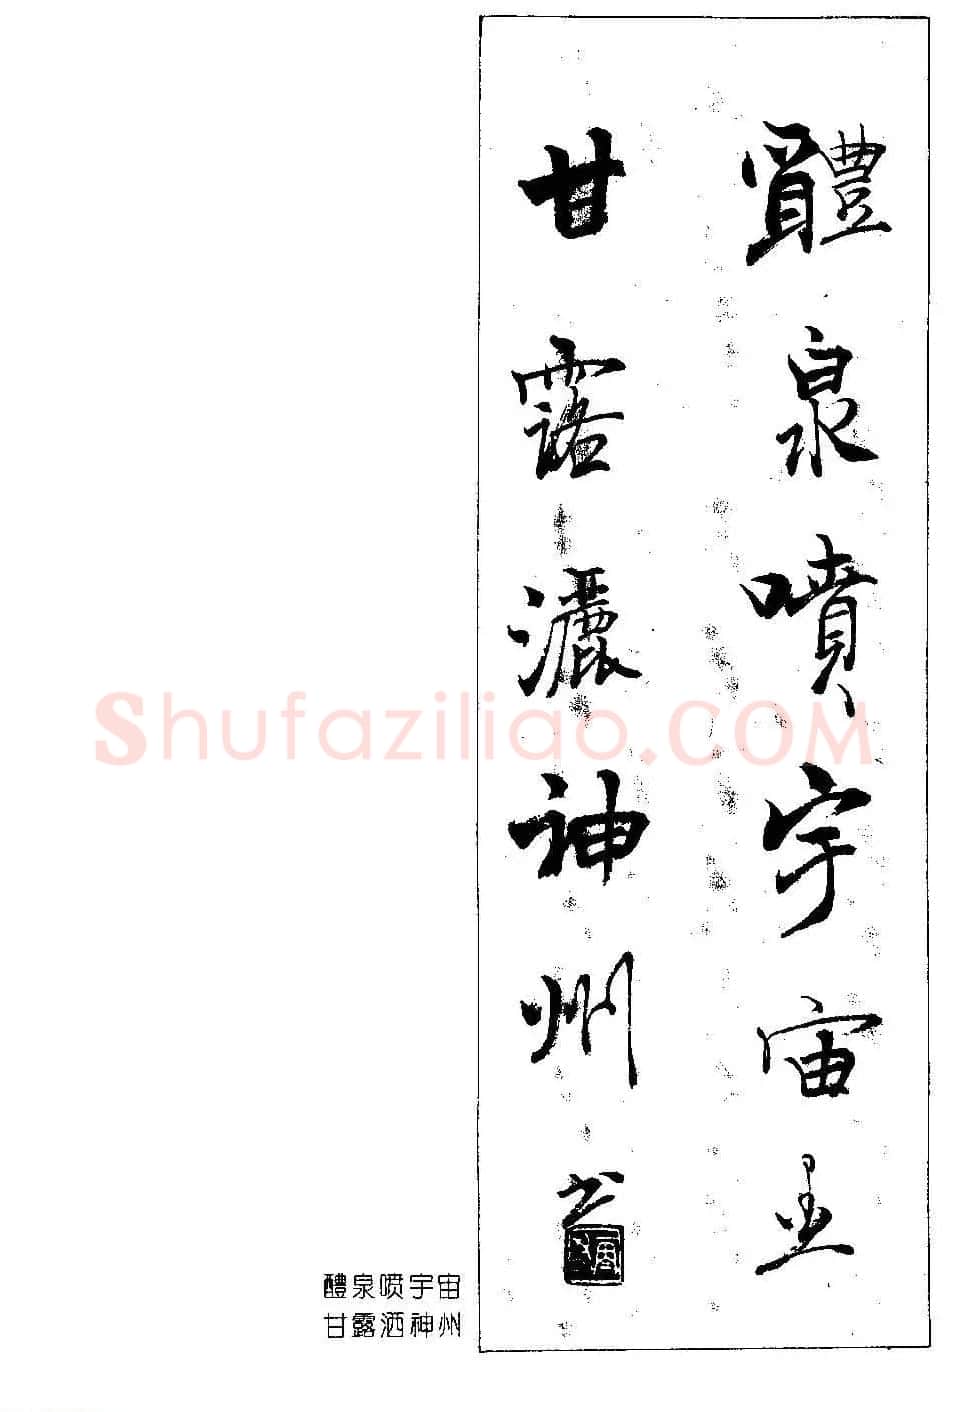 醴泉噴宇宙
甘露灑神州
醴泉喷宇宙
甘露洒神州
Shufaziliao.COM